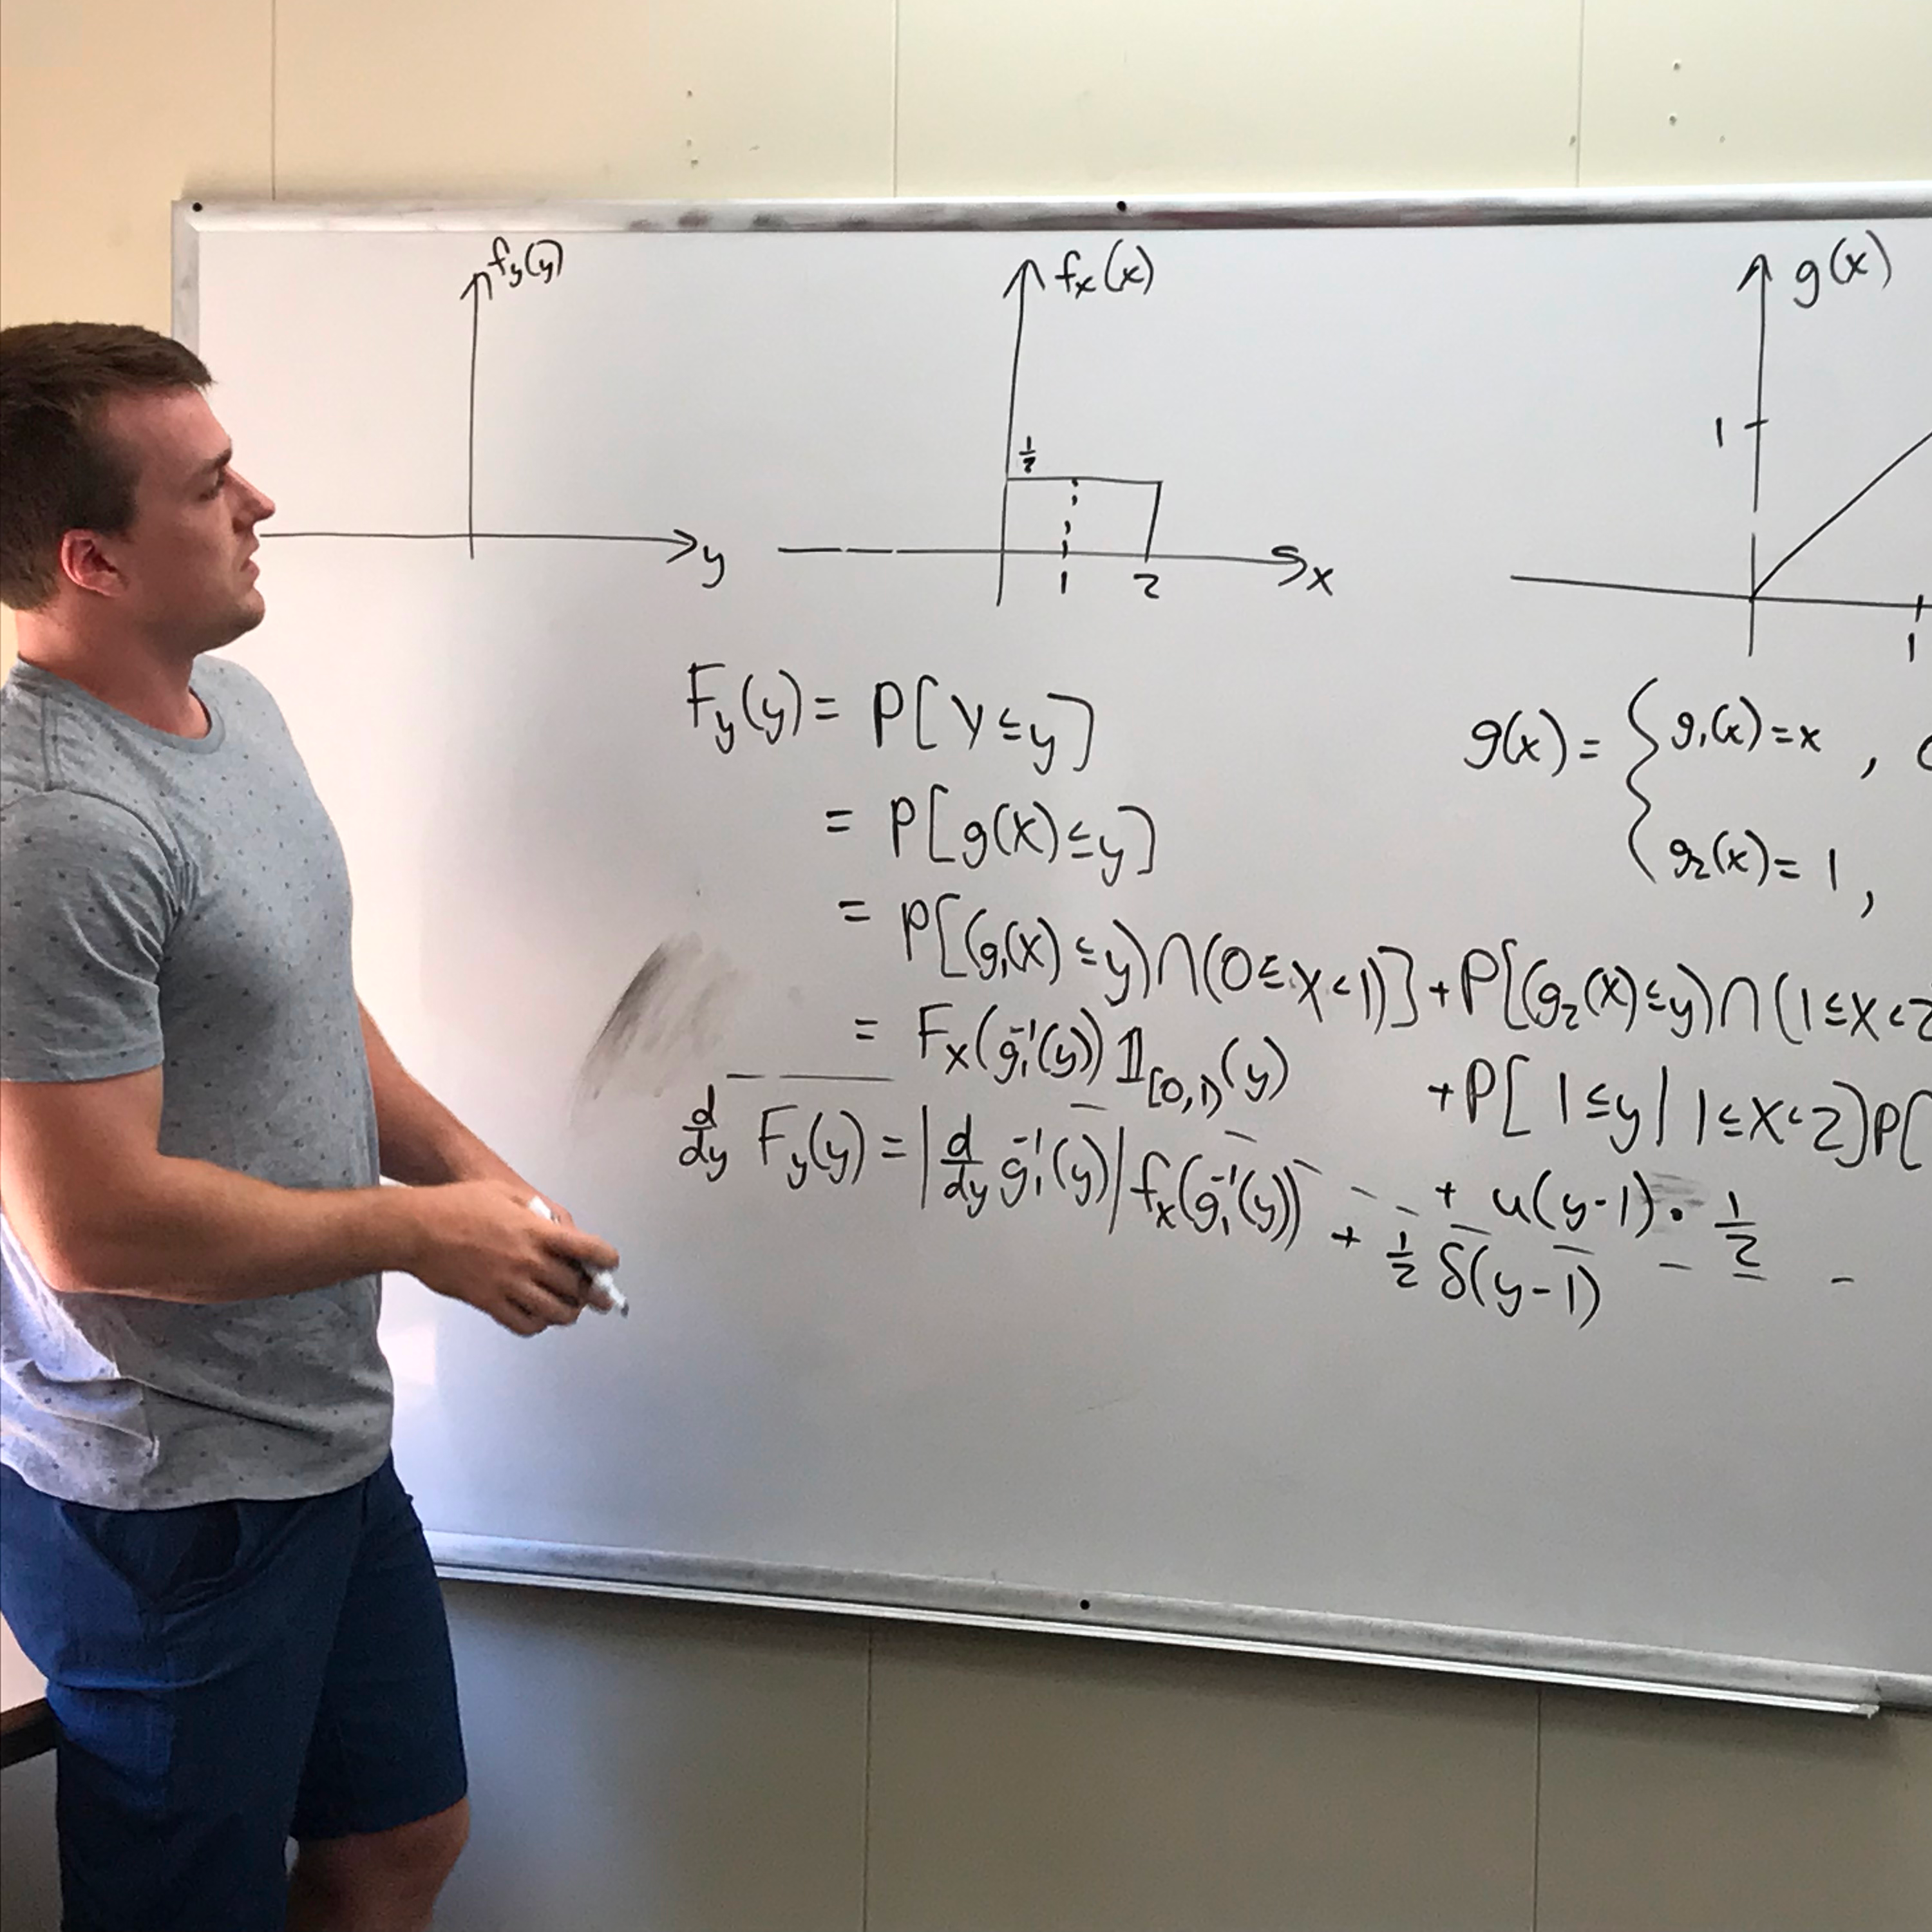 f_y(y)
y
f_x(x)
1/2
1 2
x
g(x)
1
1
F_y(y) = P[Y ≤ y]
= P[g(X) ≤ y]
= P[(g_1(X) ≤ y) ∩ (0 ≤ X < 1)] + P[(g_2(X) ≤ y) ∩ (1 ≤ X < 2
= F_x(g_1^{-1}(y)) 𝟙_{[0,1)}(y) + P[1 ≤ y | 1 ≤ X < 2] P[
+ u(y-1) · 1/2
d/dy F_y(y) = |d/dy g_1^{-1}(y)| f_x(g_1^{-1}(y)) + 1/2 δ(y-1)
g(x) = { g_1(x) = x ,
g_2(x) = 1 ,